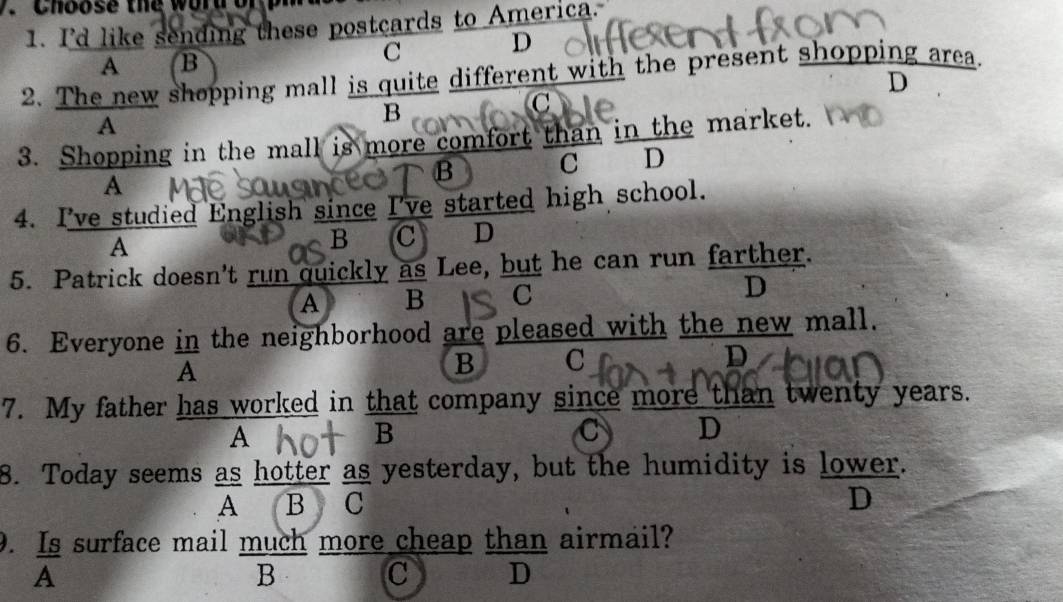 Choose the word or
to send
1. I'd like sending these postcards to America.
A B C D different from
2. The new shopping mall is quite different with the present shopping area.
A B C D
comfortable
3. Shopping in the mall is more comfort than in the market.
A B C D
4. I've studied English since I've started high school.
A B C D
as
5. Patrick doesn't run quickly as Lee, but he can run farther.
A B C D
is
6. Everyone in the neighborhood are pleased with the new mall.
A B C D
for + more than
7. My father has worked in that company since more than twenty years.
A B C D
hot
8. Today seems as hotter as yesterday, but the humidity is lower.
A B C D
9. Is surface mail much more cheap than airmail?
A B C D